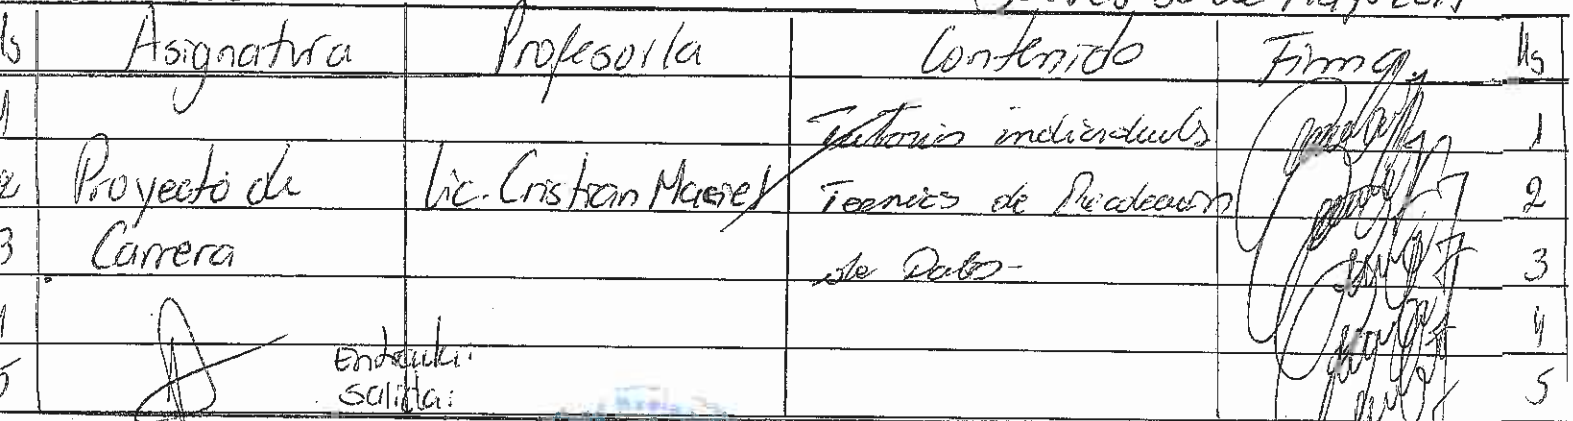 Hs Asignatura Profesor/a Contenido Firma Hs
1 Tutorias individuals 1
2 Proyecto de Lic. Cristian Maciel Tecnicas de 2
3 Carrera de Datos- 3
4 4
5 Entrada:
Salida: 5